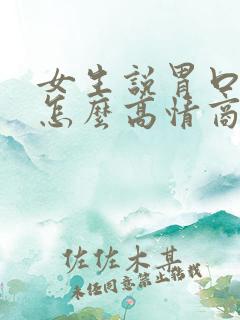 女生說胃口
怎麼高情商
佐佐木其
未經同意禁止轉載